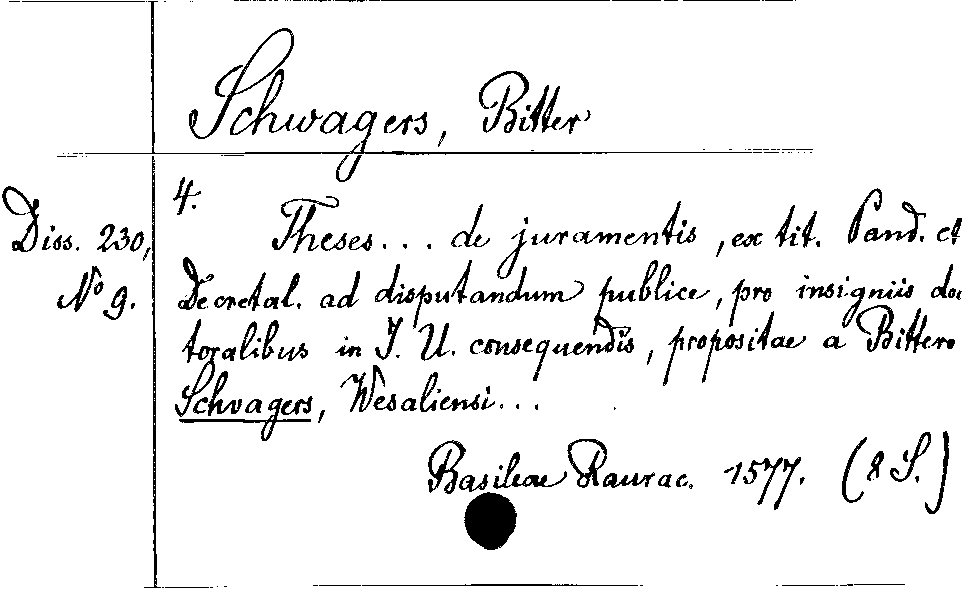 Schwagers, Bitter
4.
Diss. 230,
No 9.
Theses... de juramentis, ex tit. Pand. et
Decretal. ad disputandum publice, pro insigniis doc
toralibus in J. U. consequendis, propositae a Bittero
Schvagers, Wesaliensi...
Basileae Raurac. 1577. (8 S.)